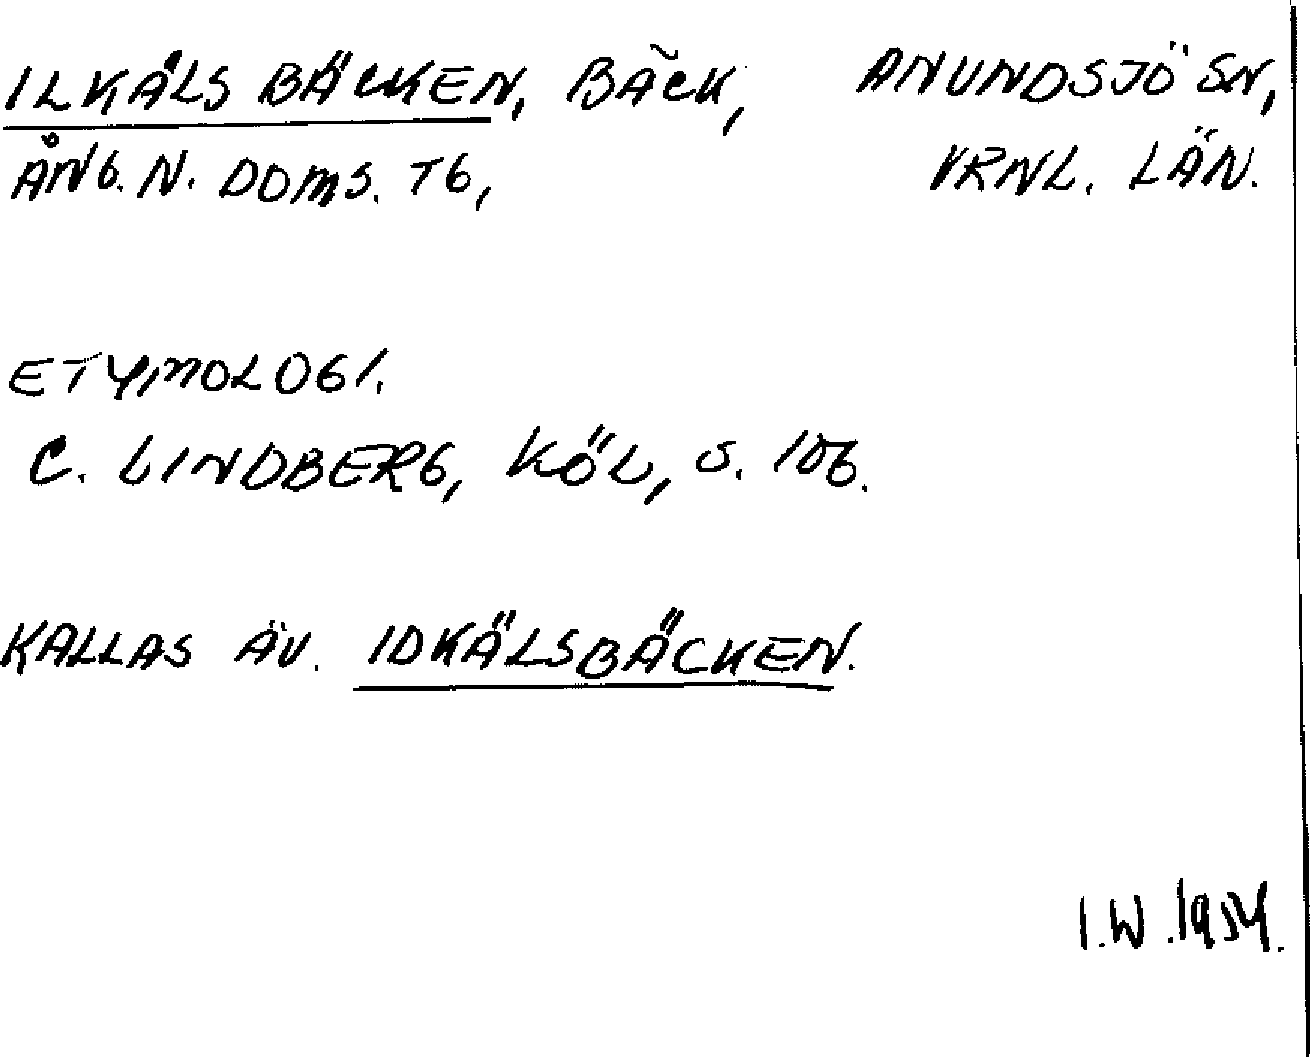 ILKÅLSBÄCKEN, BÄCK, ANUNDSJÖ SN,
ÅNG. N. DOMS. TG, VRNL. LÄN.
ETYMOLOGI.
C. LINDBERG, KÖL, S. 106.
KALLAS ÄV. IDKÄLSBÄCKEN.
I.W. 1954.